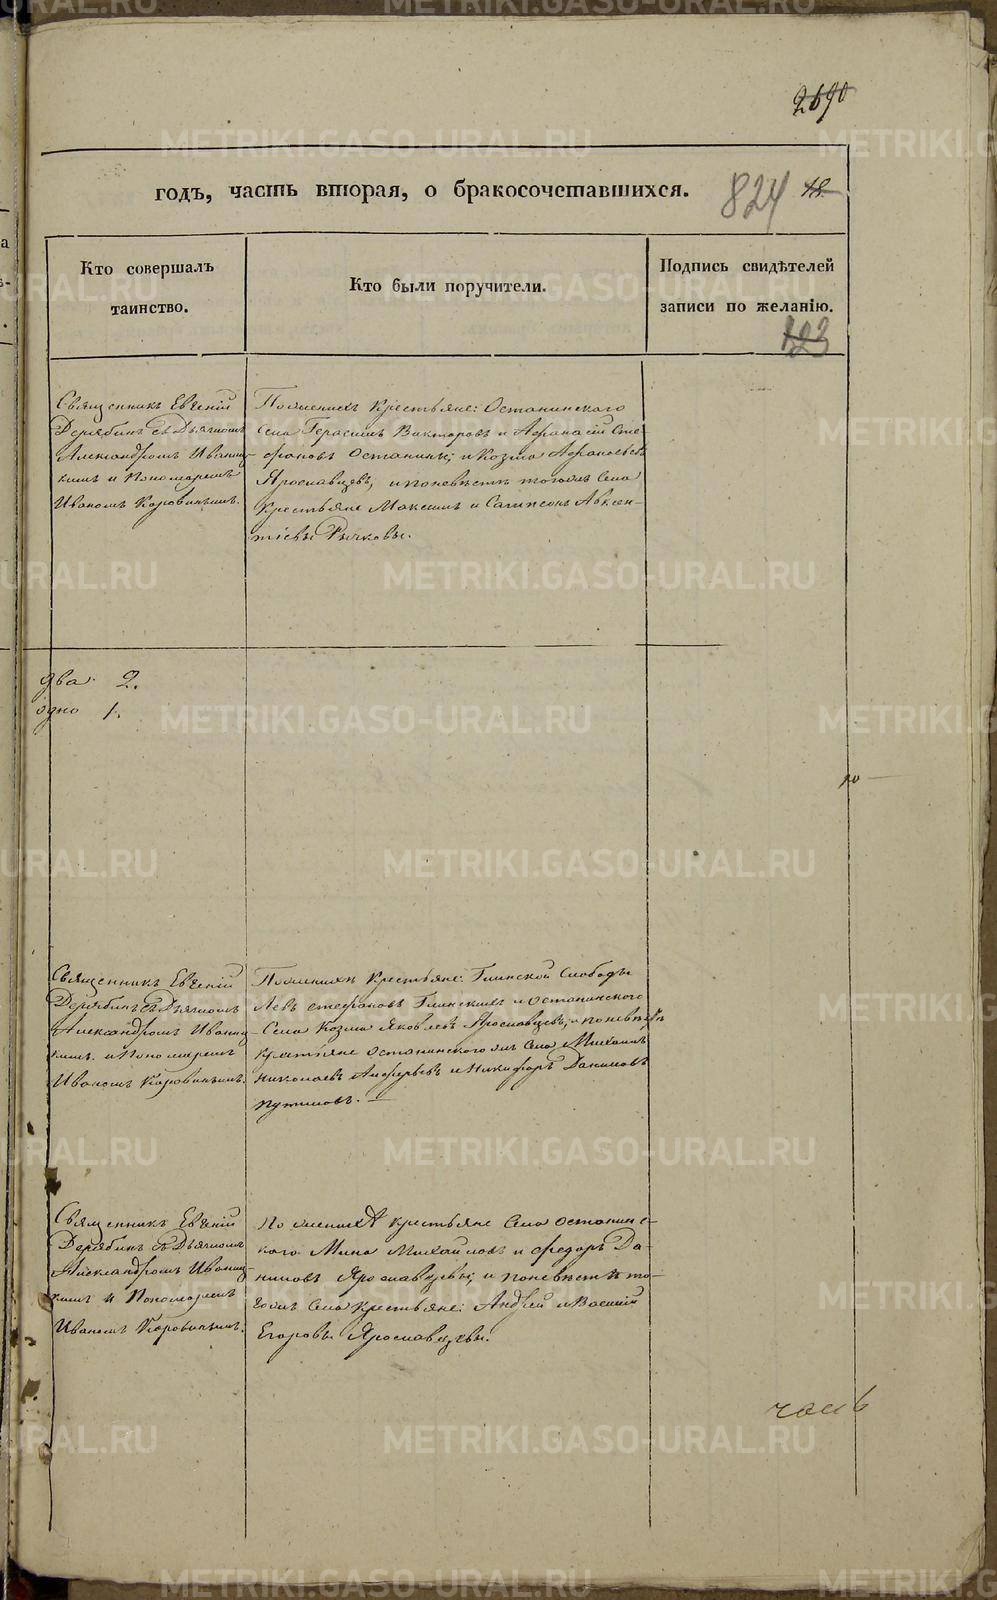 METRIKI.GASO-URAL.RU
2690
годъ, часть вторая, о бракосочетавшихся.
824 18.
Кто совершалъ
таинство.
Кто были поручители.
Подпись свидѣтелей
записи по желанію.
123
Священникъ Евгеній
Дерябинъ съ Дьячкомъ
Александромъ Иваниц-
кимъ и Пономаремъ
Иваномъ Коровинымъ.
По женихѣ крестьяне: Останинскаго
села Герасимъ Викторовъ и Афанасій Сте-
фановъ Останины; и Козма Афанасьевъ
Ярославцевъ; и по невѣстѣ тогожъ села
крестьяне Максимъ и Сампсонъ Авксен-
тіевы Рычковы.
два. 2.
одно 1.
Священникъ Евгеній
Дерябинъ съ Дьячкомъ
Александромъ Иваниц-
кимъ и Пономаремъ
Иваномъ Коровинымъ.
По женихѣ крестьяне: Глинской слободы
Левъ Стефановъ Глинскихъ и Останинскаго
села Козма Яковлевъ Ярославцевъ, и по невѣстѣ
крестьяне Останинскагожъ села Михаилъ
Николаевъ Алферьевъ и Никифоръ Даниловъ
Путиловъ.
Священникъ Евгеній
Дерябинъ съ Дьячкомъ
Александромъ Иваниц-
кимъ и Пономаремъ
Иваномъ Коровинымъ.
По женихѣ крестьяне села Останинс-
каго Мина Михайловъ и Федоръ Да-
ниловъ Ярославцевы; и по невѣстѣ то-
гожъ села крестьяне: Андрей и Василій
Егоровы Ярославцевы.
часть